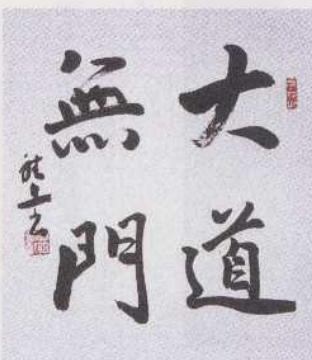 大道
無門